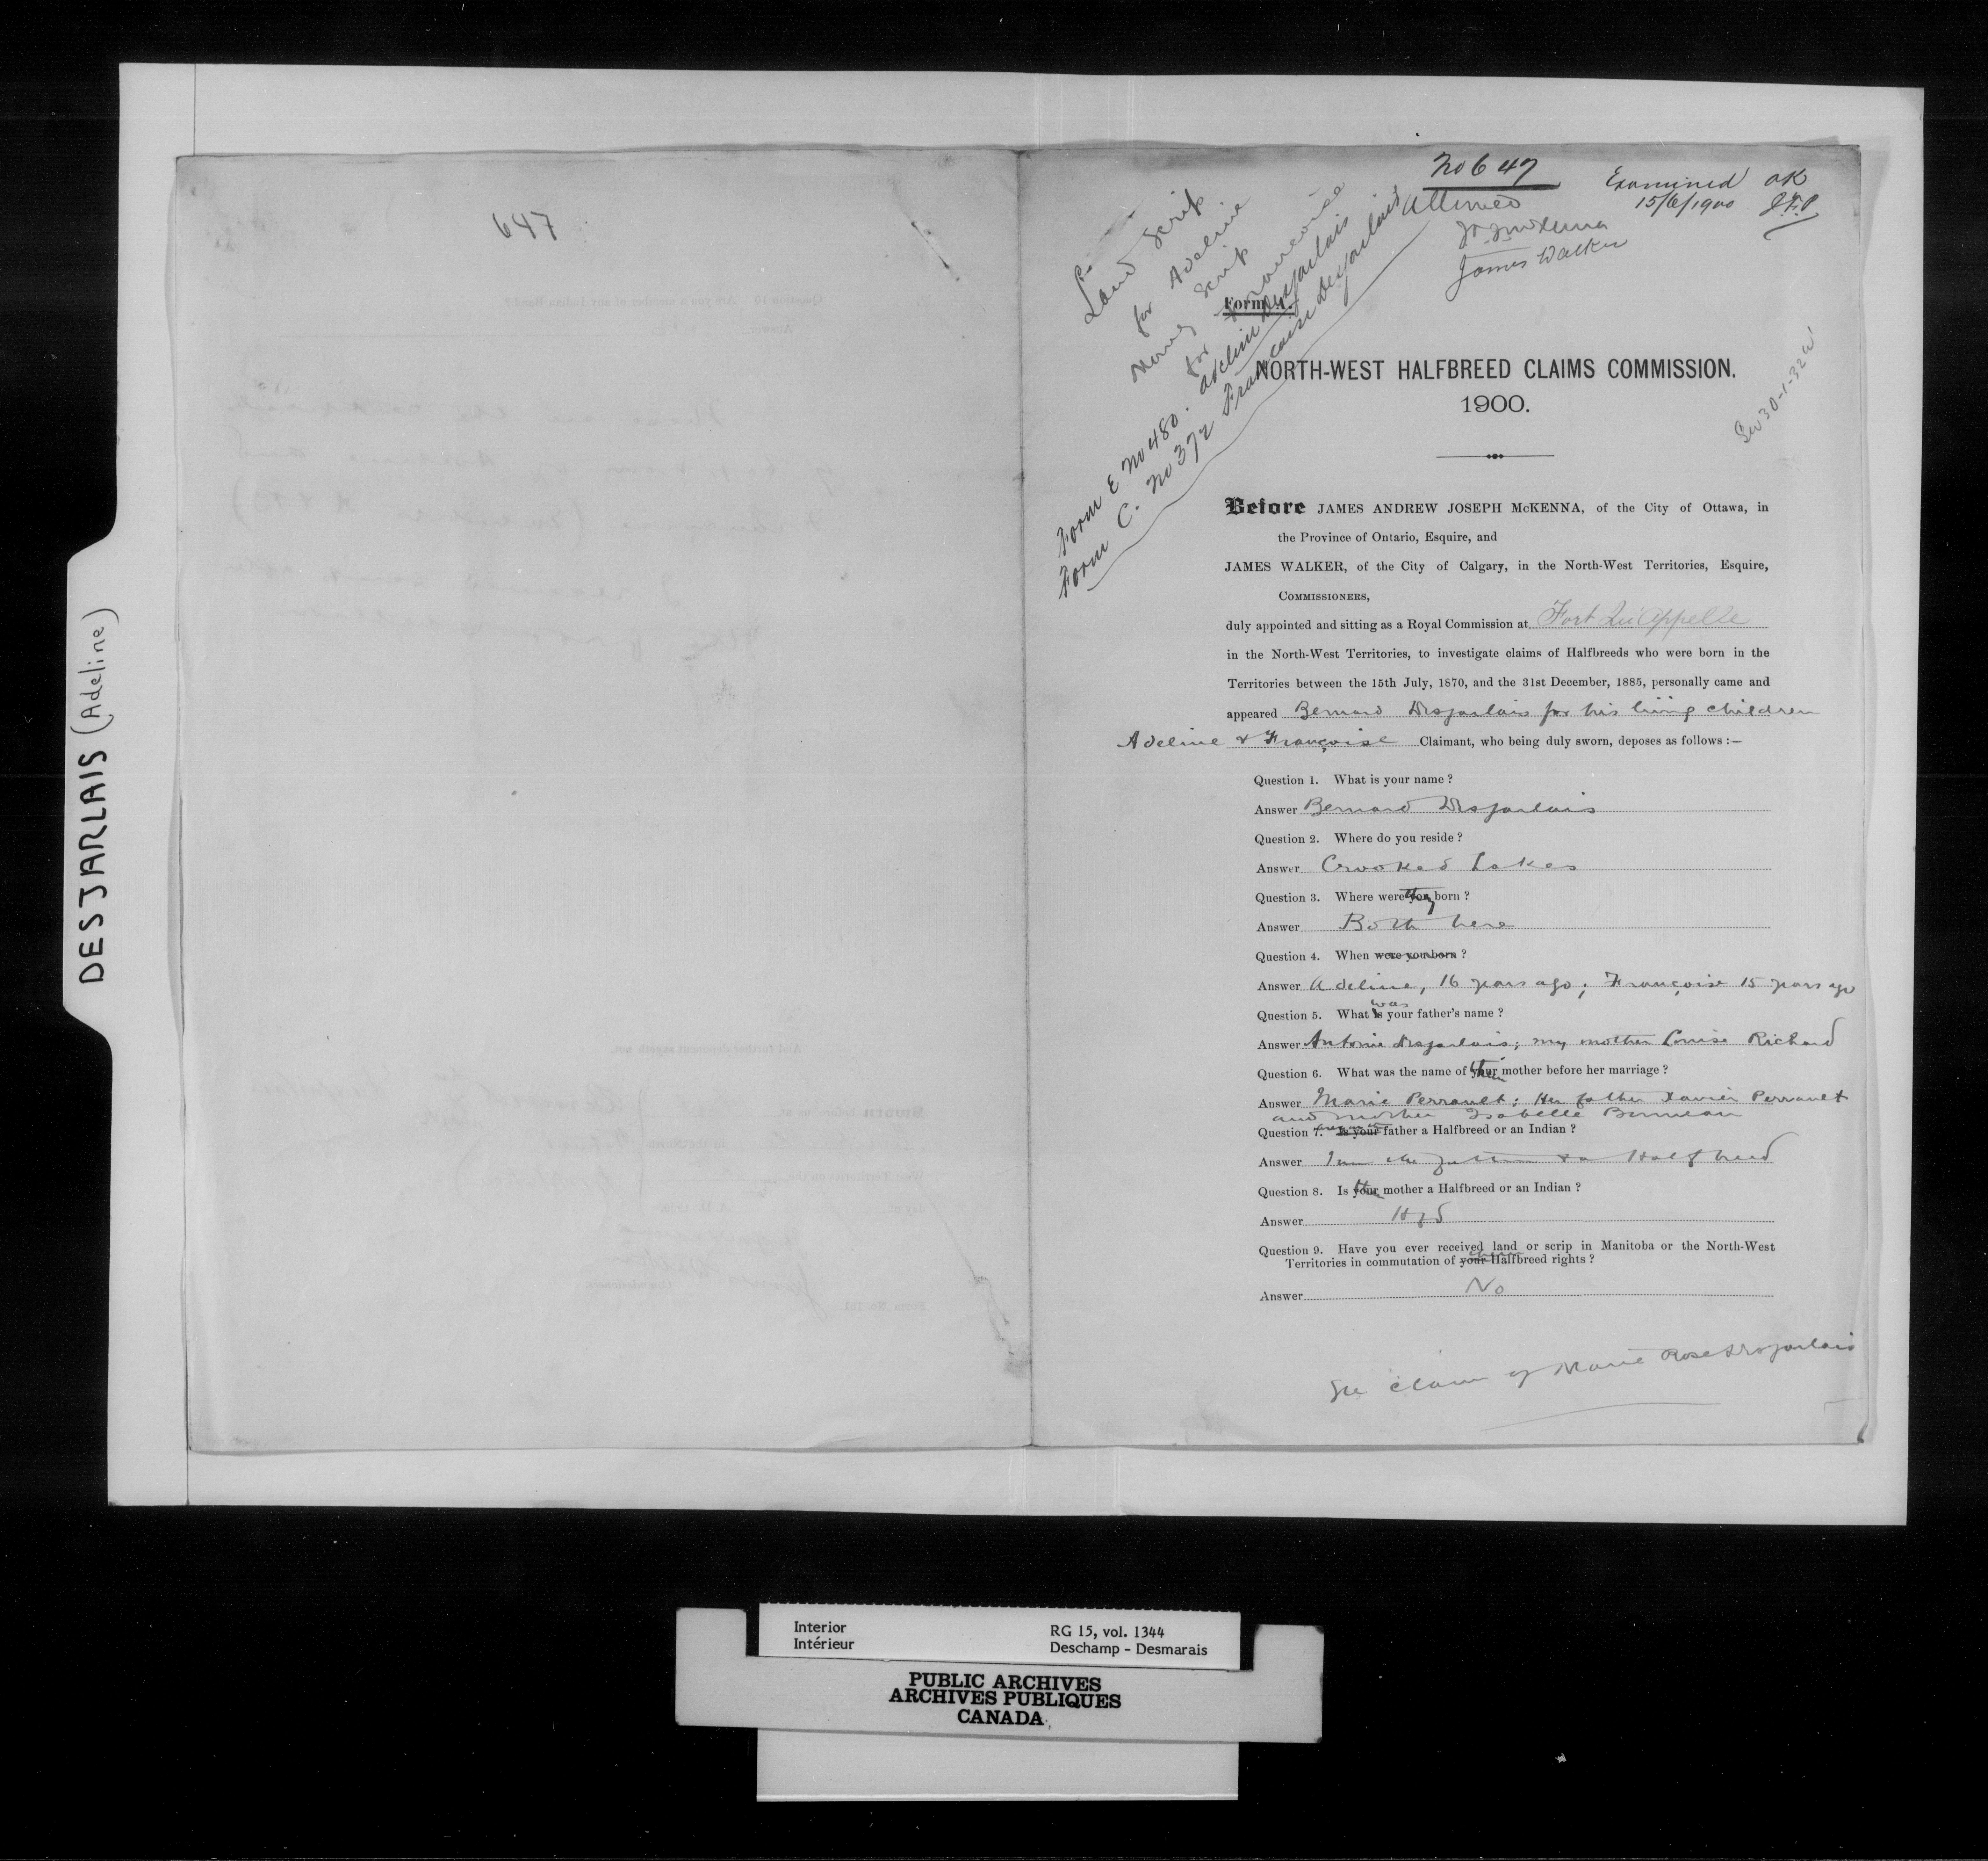 DESJARLAIS (Adeline)
647
No 647
Allowed
Examined OK
15/6/1900 J.F.P
J A J McKenna
James Walker
Land Scrip
for Adeline
Money Scrip
for Francoise
Form E No 480. Adeline Desjarlais
Form C. No 372 Francoise Desjarlais
Form A.
NORTH-WEST HALFBREED CLAIMS COMMISSION.
1900.
30-1-32 W
Before JAMES ANDREW JOSEPH McKENNA, of the City of Ottawa, in
the Province of Ontario, Esquire, and
JAMES WALKER, of the City of Calgary, in the North-West Territories, Esquire,
COMMISSIONERS,
duly appointed and sitting as a Royal Commission at Fort Qu'Appelle
in the North-West Territories, to investigate claims of Halfbreeds who were born in the
Territories between the 15th July, 1870, and the 31st December, 1885, personally came and
appeared Bernard Desjarlais for his living children
Adeline & Françoise Claimant, who being duly sworn, deposes as follows :—
Question 1. What is your name ?
Answer Bernard Desjarlais
Question 2. Where do you reside ?
Answer Crooked Lakes
Question 3. Where were you they born ?
Answer Both here
Question 4. When were you born ?
Answer Adeline, 16 years ago; Françoise 15 years ago
Question 5. What is was your father's name ?
Answer Antoine Desjarlais; my mother Louise Richard
Question 6. What was the name of your their mother before her marriage ?
Answer Marie Perrault: Her father Xavier Perrault
and mother Isabelle Bonneau
Question 7. Is your father a Halfbreed or an Indian ?
Answer I am the father & a Halfbreed
Question 8. Is your the mother a Halfbreed or an Indian ?
Answer Hfd
Question 9. Have you ever received land or scrip in Manitoba or the North-West
Territories in commutation of your Halfbreed rights ?
Answer No
See claim of Marie Rose Desjarlais
Interior
Intérieur
RG 15, vol. 1344
Deschamp - Desmarais
PUBLIC ARCHIVES
ARCHIVES PUBLIQUES
CANADA